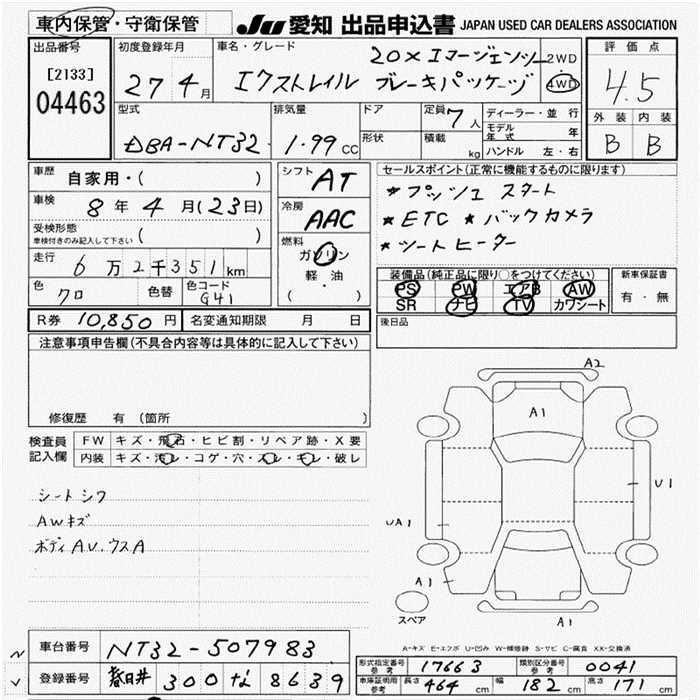 車内保管・守衛保管 JU 愛知 出品申込書 JAPAN USED CAR DEALERS ASSOCIATION
出品番号
[2133]
04463
初度登録年月
27 4月
車名・グレード
20X エマージェンシー 2WD
エクストレイル ブレーキパッケージ 4WD
評価点
4.5
外装 内装
B B
型式
DBA-NT32
排気量
1.99CC
ドア
形状
定員 7人
積載 kg
ディーラー・並行
モデル年式 年
ハンドル 左・右
車歴
自家用・( )
車検
8年4月(23日)
受検形態
車検付きのみ記入して下さい ( )
走行
6万2千351km
色
クロ 色替
色コード
G41
シフト
AT
冷房
AAC
燃料
ガソリン
軽油
( ・ )
セールスポイント(正常に機能するものに限ります)
*プッシュスタート
*ETC *バックカメラ
*シートヒーター
装備品(純正品に限り○をつけてください)
PS PW エアB AW
SR ナビ TV カワシート
新車保証書
有・無
後日品
R券 10,850円 名変通知期限 月 日
注意事項申告欄(不具合内容等は具体的に記入して下さい)
修復歴 有(箇所 )
検査員記入欄
FW キズ・飛石・ヒビ割・リペア跡・X要
内装 キズ・汚レ・コゲ・穴・スレ・キレ・破レ
シートシワ
AWキズ
ボディAU.ウスA
A2
A1
U1
UA1
A1
A1
スペア
A-キズ E-エクボ U-凹み W-補修跡 S-サビ C-腐食 XX-交換済
車台番号 NT32-507983
登録番号 春日井 300 な 8639
型式指定番号参考 17663 類別区分番号参考 0041
車庫証明用参考 長さ 464cm 幅 182cm 高さ 171cm